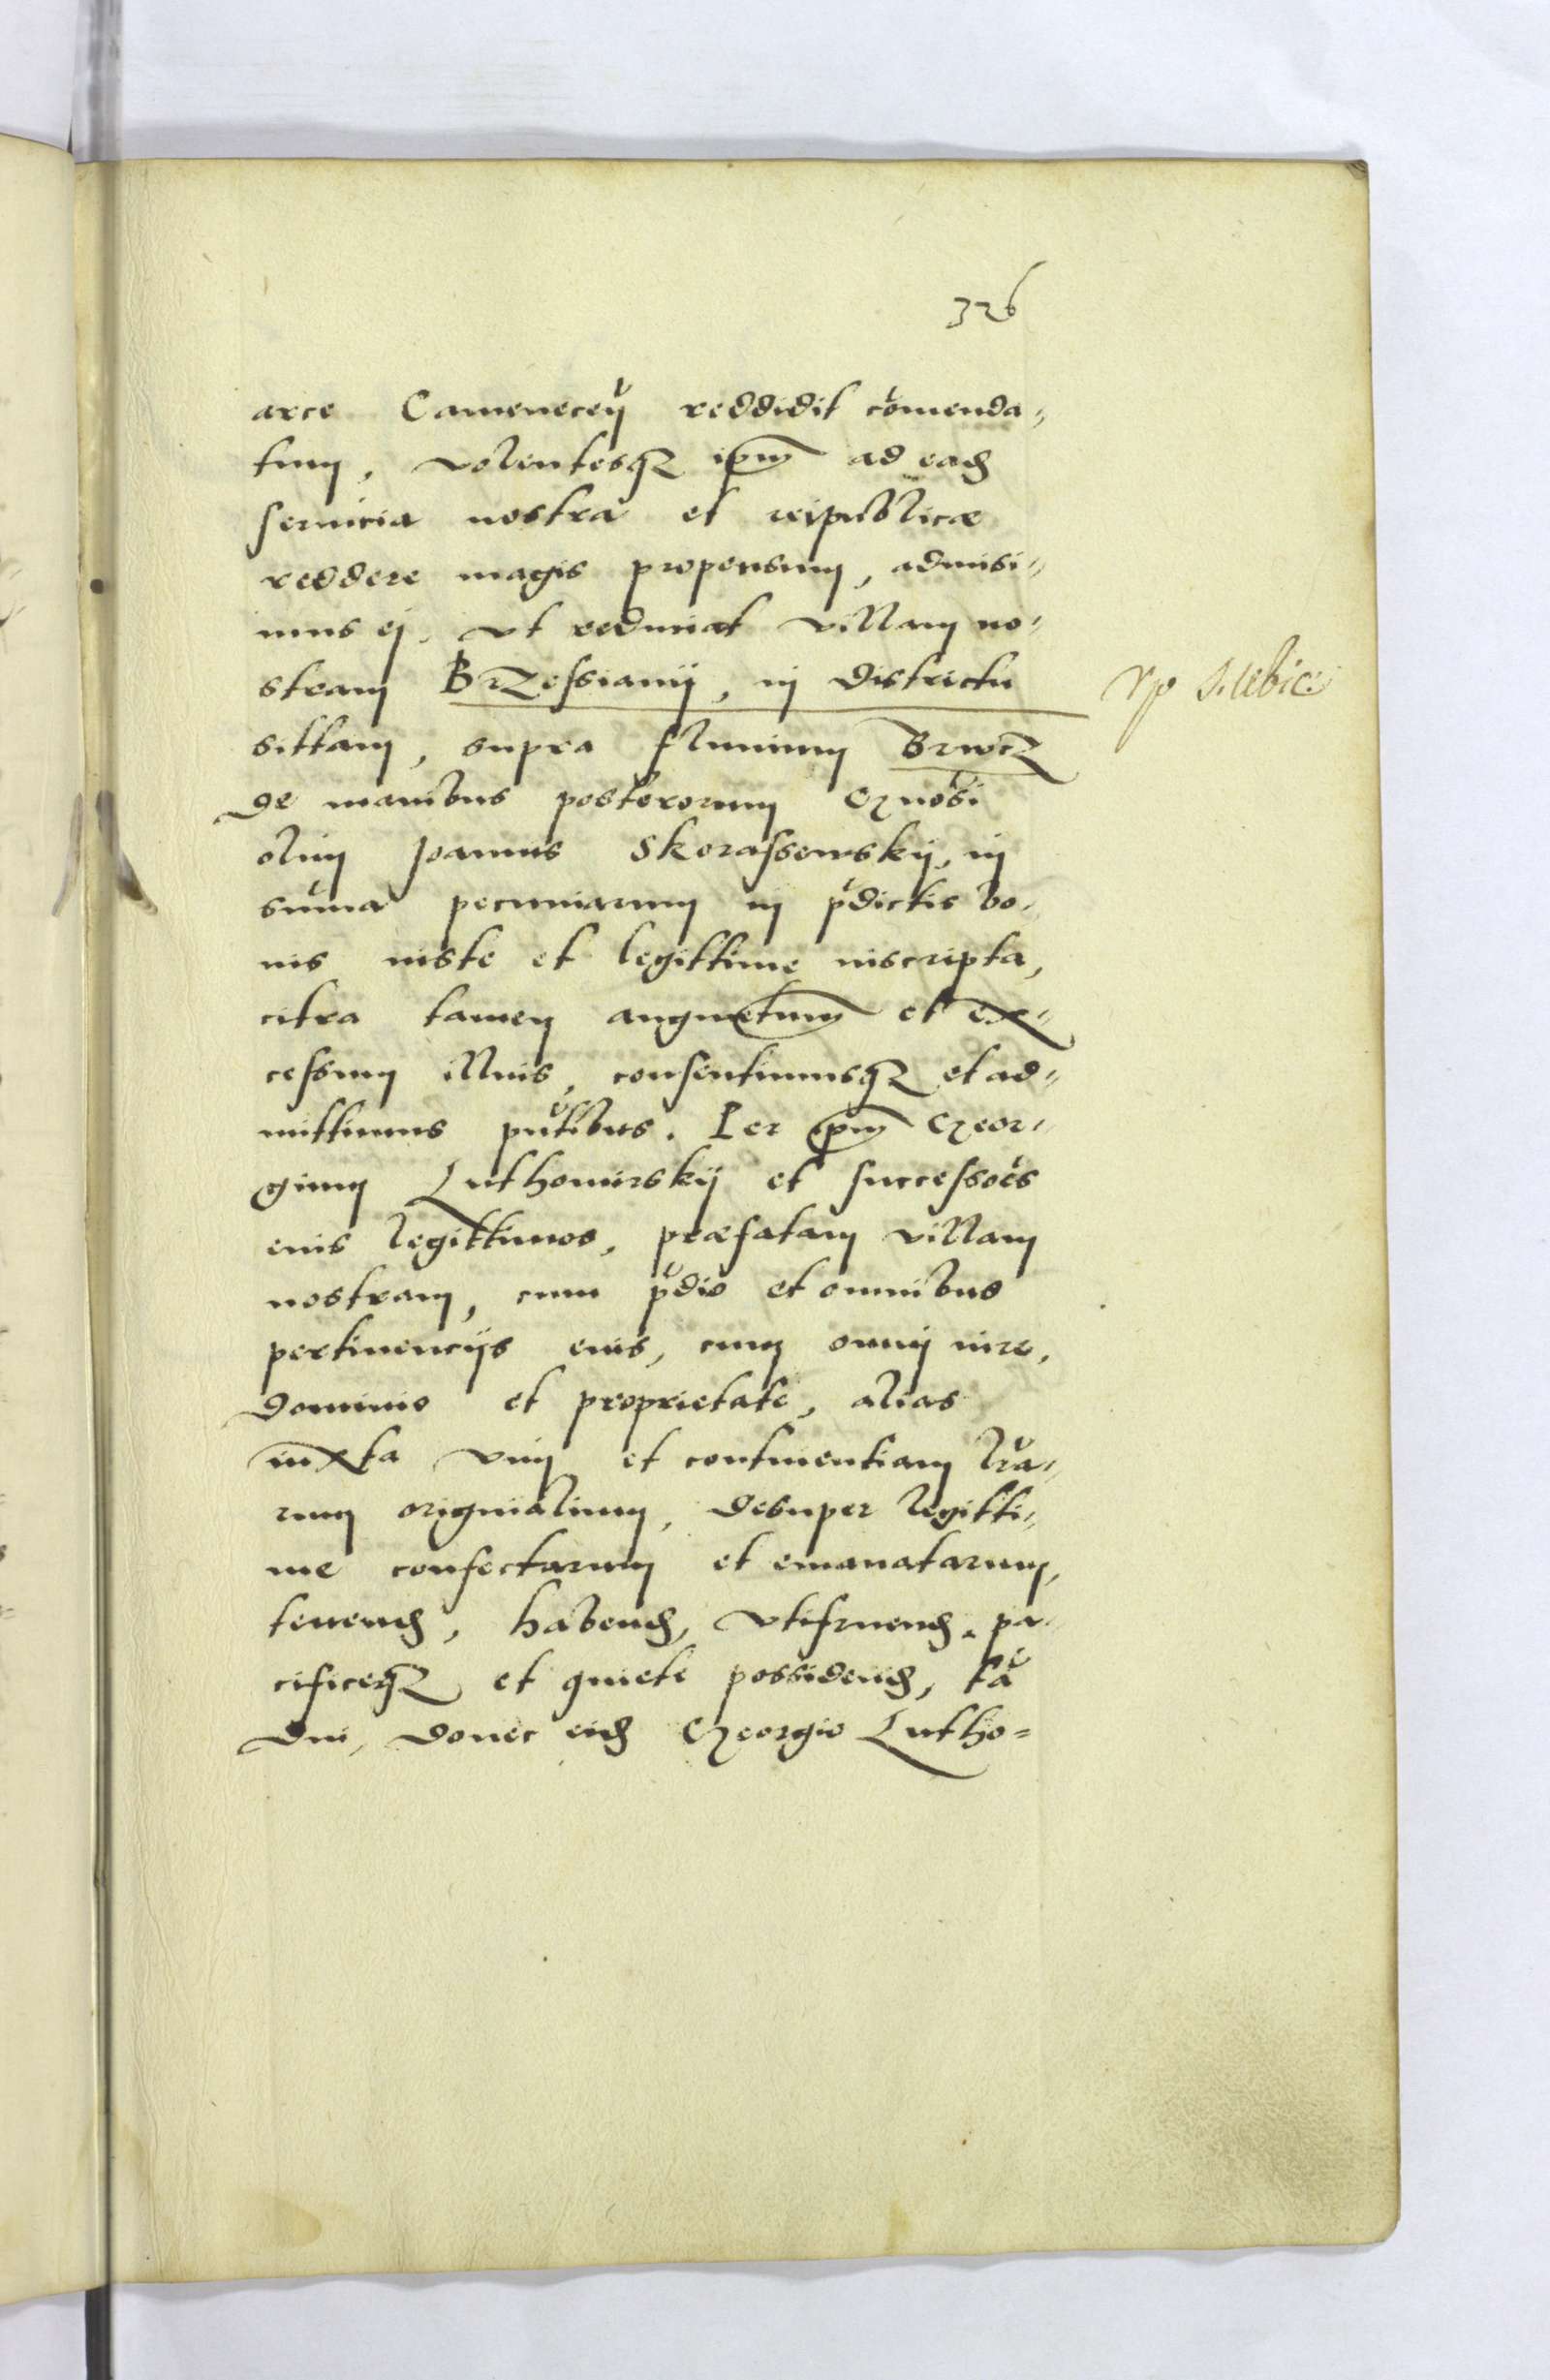 326
arce Camenecen̄ reddidit cōmenda⸗
tum, volentesq₃ ip̄m ad ead
seruicia nostra et reipublicæ
reddere magis propensum, admisi⸗
mus ej, vt redimat villam no⸗
stram Brzessiany, in districtu
sittam, supra fluuium Brwcz
de manibus posterorum Gn̄osi
olim Joannis Skorassewskÿ, in
sūma pecuniarum in p̄dictis bo⸗
nis iuste et legittime inscripta,
citra tamen augmētum et ex⸗
cessum illius, consentimusq₃ et ad⸗
mittimus pn̄tibus. Per ip̄m Geor⸗
gium Luthomirskÿ et successōes
eius legittimos, præfatam villam
nostram, cum p̄dio et omnibus
pertinencijs eius, cum omnj iure,
dominio et proprietate, alias
iuxta vim et continentiam lr̄a⸗
rum originalium, desuper legitti⸗
me confectarum et emanatarum,
tenend, habend, vtifruend, pa⸗
cificeq₃ et quiete possidend, tā
diu, donec eid Georgio Lutho=